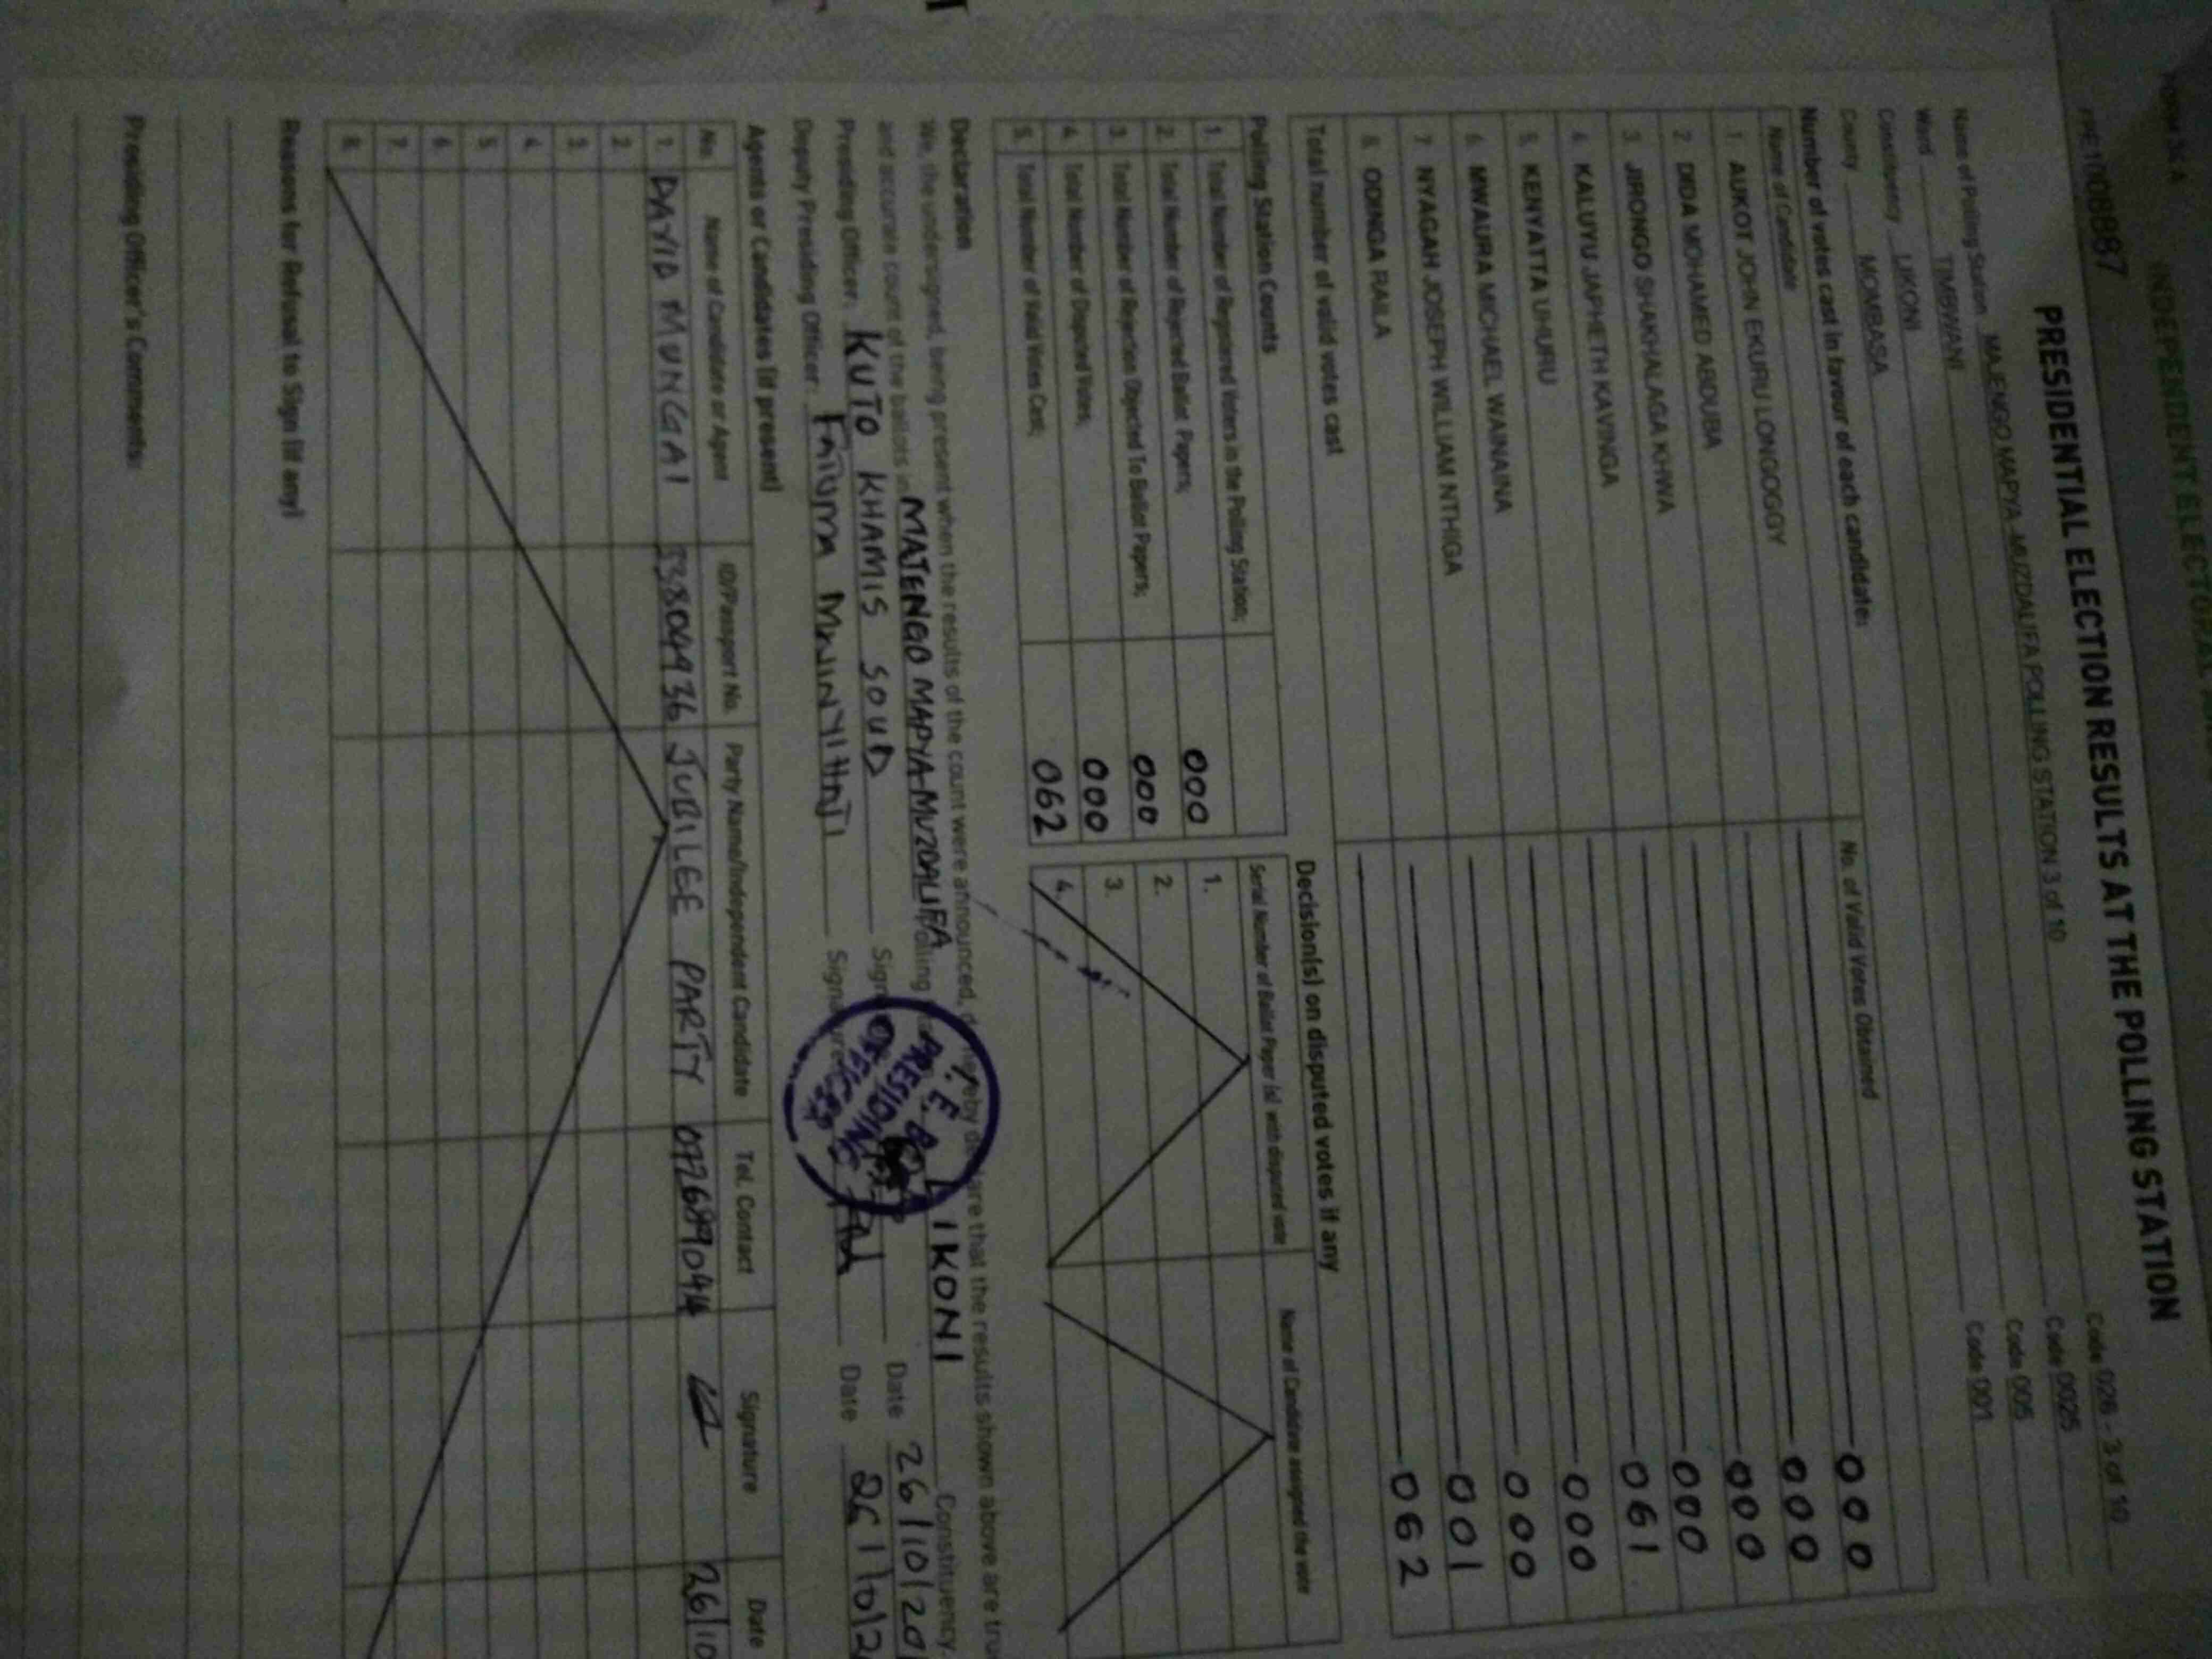 INDEPENDENT ELECTORAL
PRESIDENTIAL ELECTION RESULTS AT THE POLLING STATION
Name of Polling Station MAJENGO MAPYA -MUZDALIFA POLLING STATION 3 of 10 Code 026 - 3 of 10
Ward TIMBWANI Code 0025
Constituency LIKONI Code 005
County MOMBASA Code 001
Number of votes cast in favour of each candidate:
Name of Candidate No. of Valid Votes Obtained
1. AUKOT JOHN EKURU LONGOGGY 000
2. DIDA MOHAMED ABDUBA 000
3. JIRONGO SHAKHALAGA KHWA 000
4. KALUYU JAPHETH KAVINGA 000
5. KENYATTA UHURU 061
6. MWAURA MICHAEL WAINAINA 000
7. NYAGAH JOSEPH WILLIAM NTHIGA 000
8. ODINGA RAILA 001
Total number of valid votes cast 062
Polling Station Counts
1. Total Number of Registered Voters in the Polling Station;
2. Total Number of Rejected Ballot Papers; 000
3. Total Number of Rejection Objected To Ballot Papers; 000
4. Total Number of Disputed Votes; 000
5. Total Number of Valid Votes Cast; 062
Decision(s) on disputed votes if any
Serial Number of Ballot Paper (s) with disputed vote Name of Candidate assigned the vote
1.
2.
3.
4.
Declaration
We, the undersigned, being present when the results of the count were announced, do hereby declare that the results shown above are true
and accurate count of the ballots in MAJENGO MAPYA-MUZDALIFA Polling LIKONI Constituency.
Presiding Officer: KUTO KHAMIS SOUD Date 26/10/20
Deputy Presiding Officer: Signature Date 26/10/2
PRESIDING
OFFICER
Agents or Candidates (if present)
No. Name of Candidate or Agent ID/Passport No. Party Name/Independent Candidate Tel. Contact Signature Date
1. DAVID MUNGAI 33804936 JUBILEE PARTY 26/10
2.
3.
4.
5.
6.
7.
8.
Reasons for Refusal to Sign (if any)
Presiding Officer's Comments: